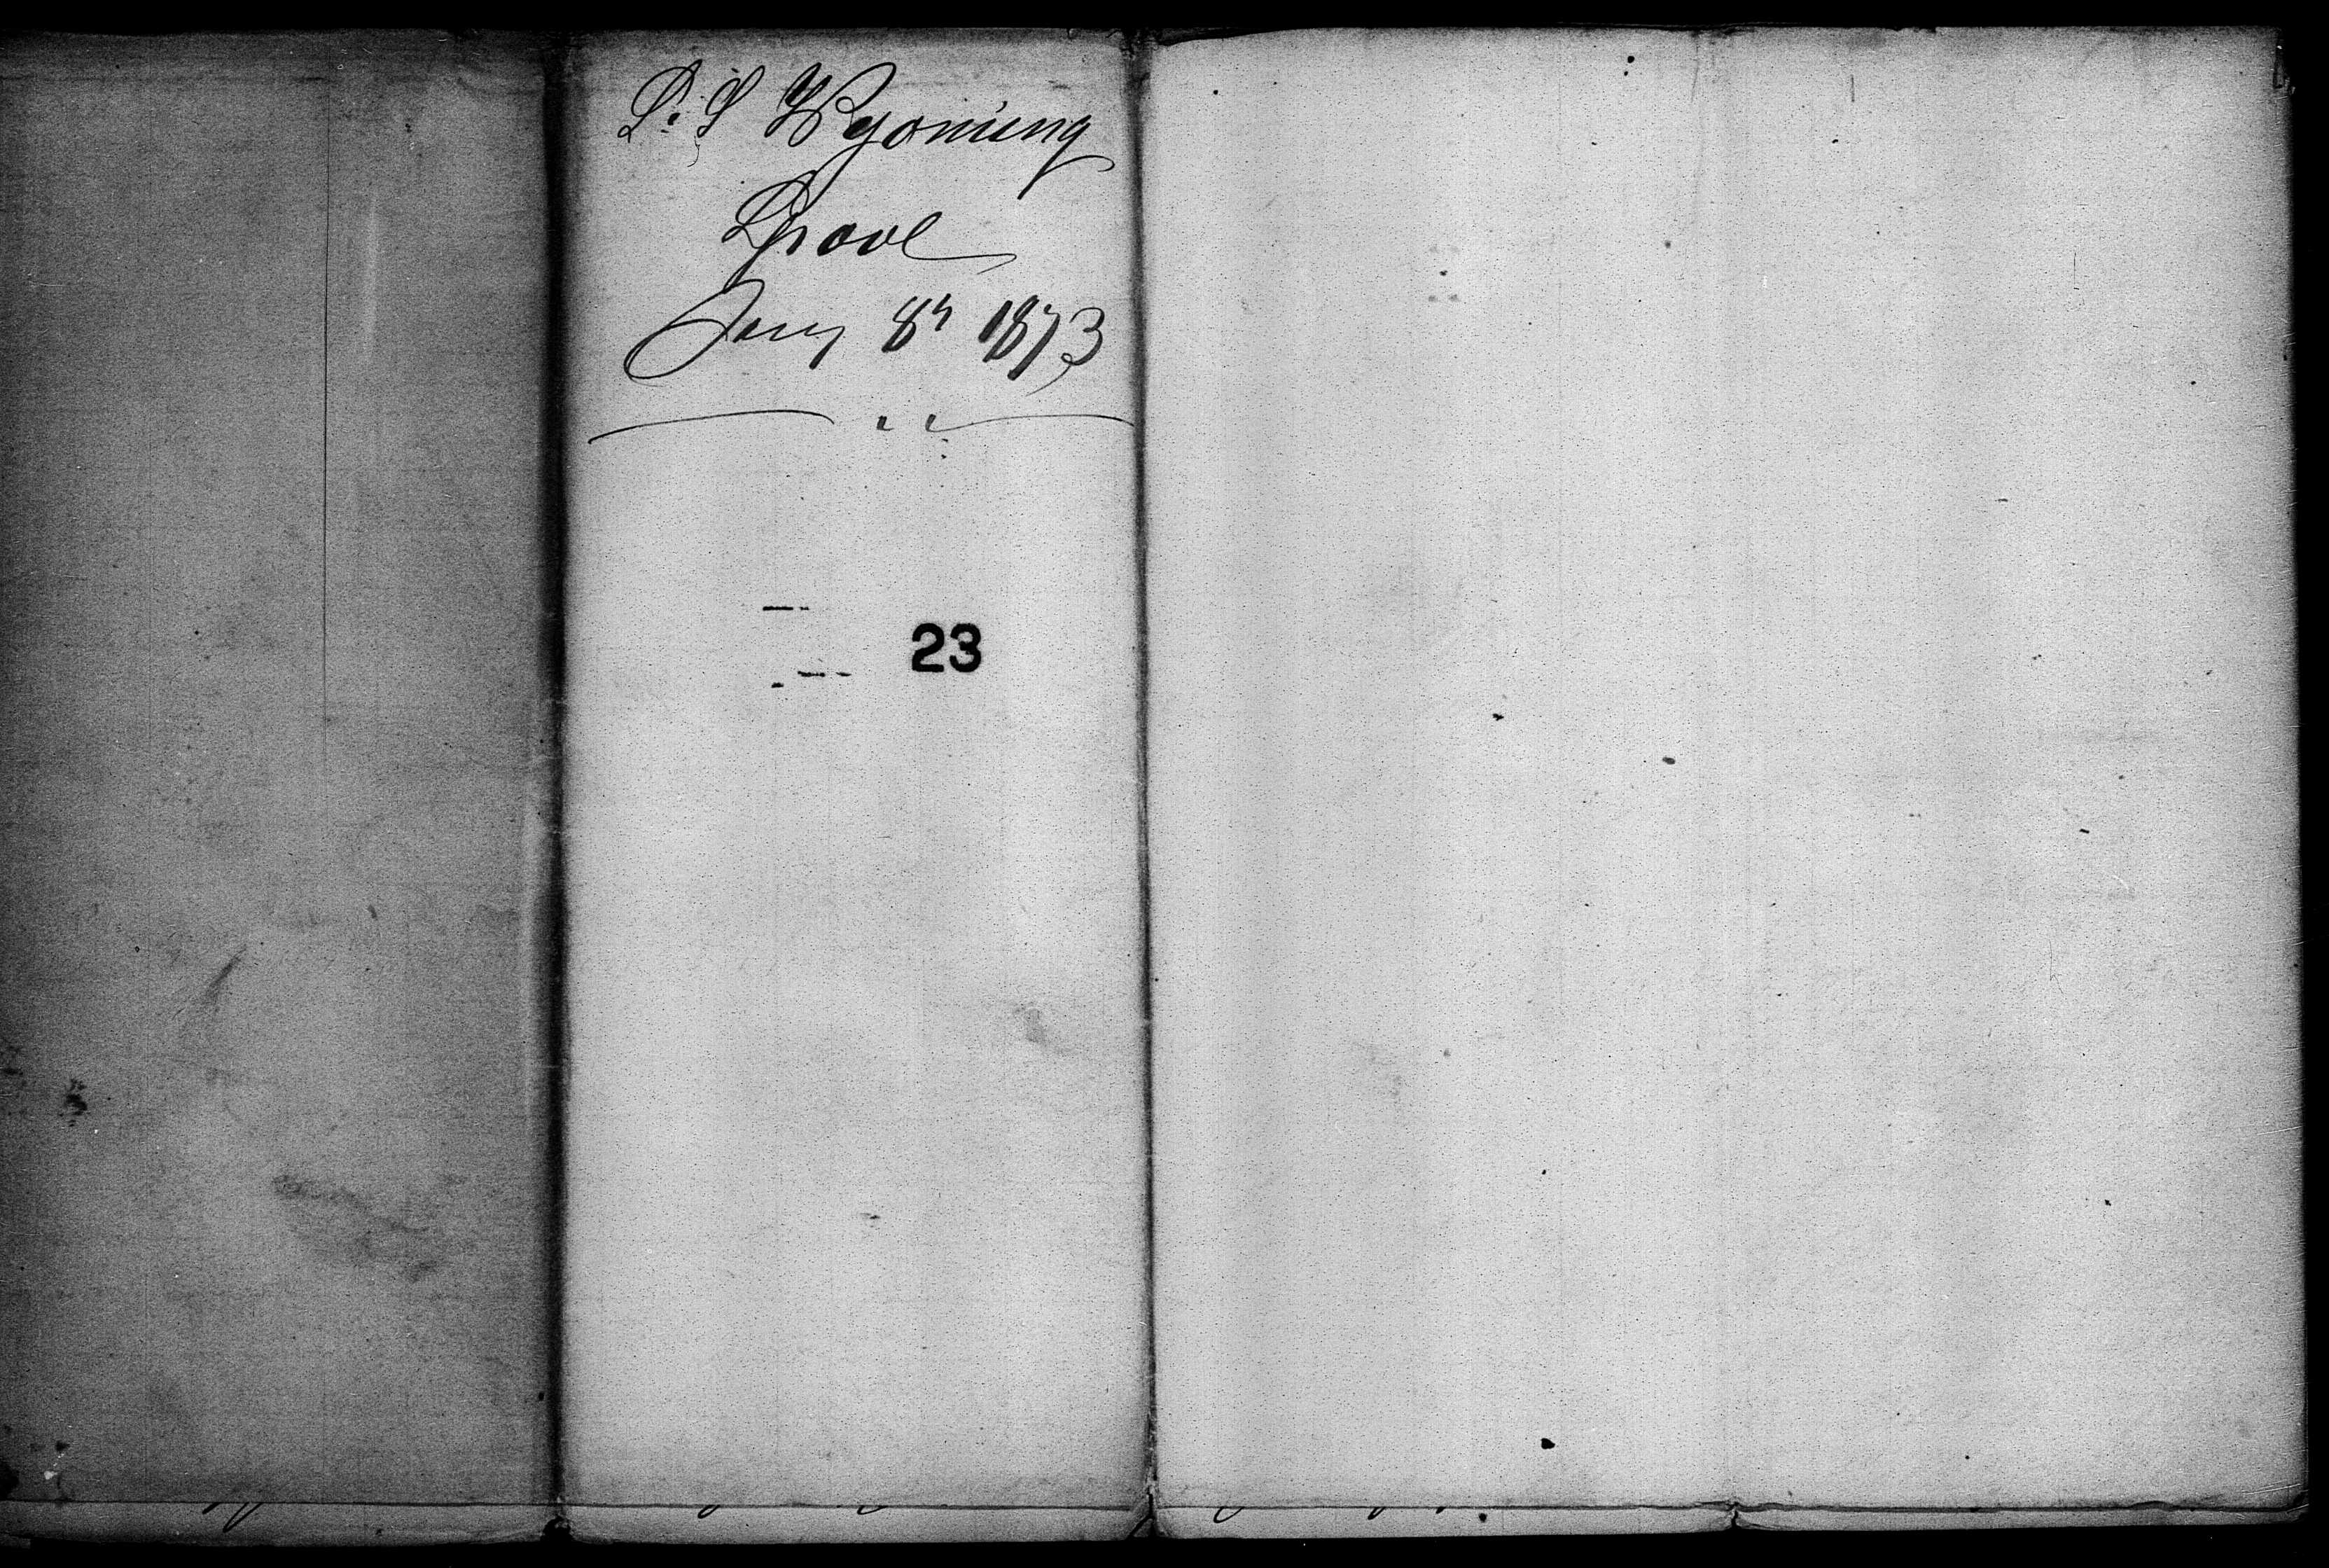 L. S Wyoming
Grove
Jany 8th 1873
23